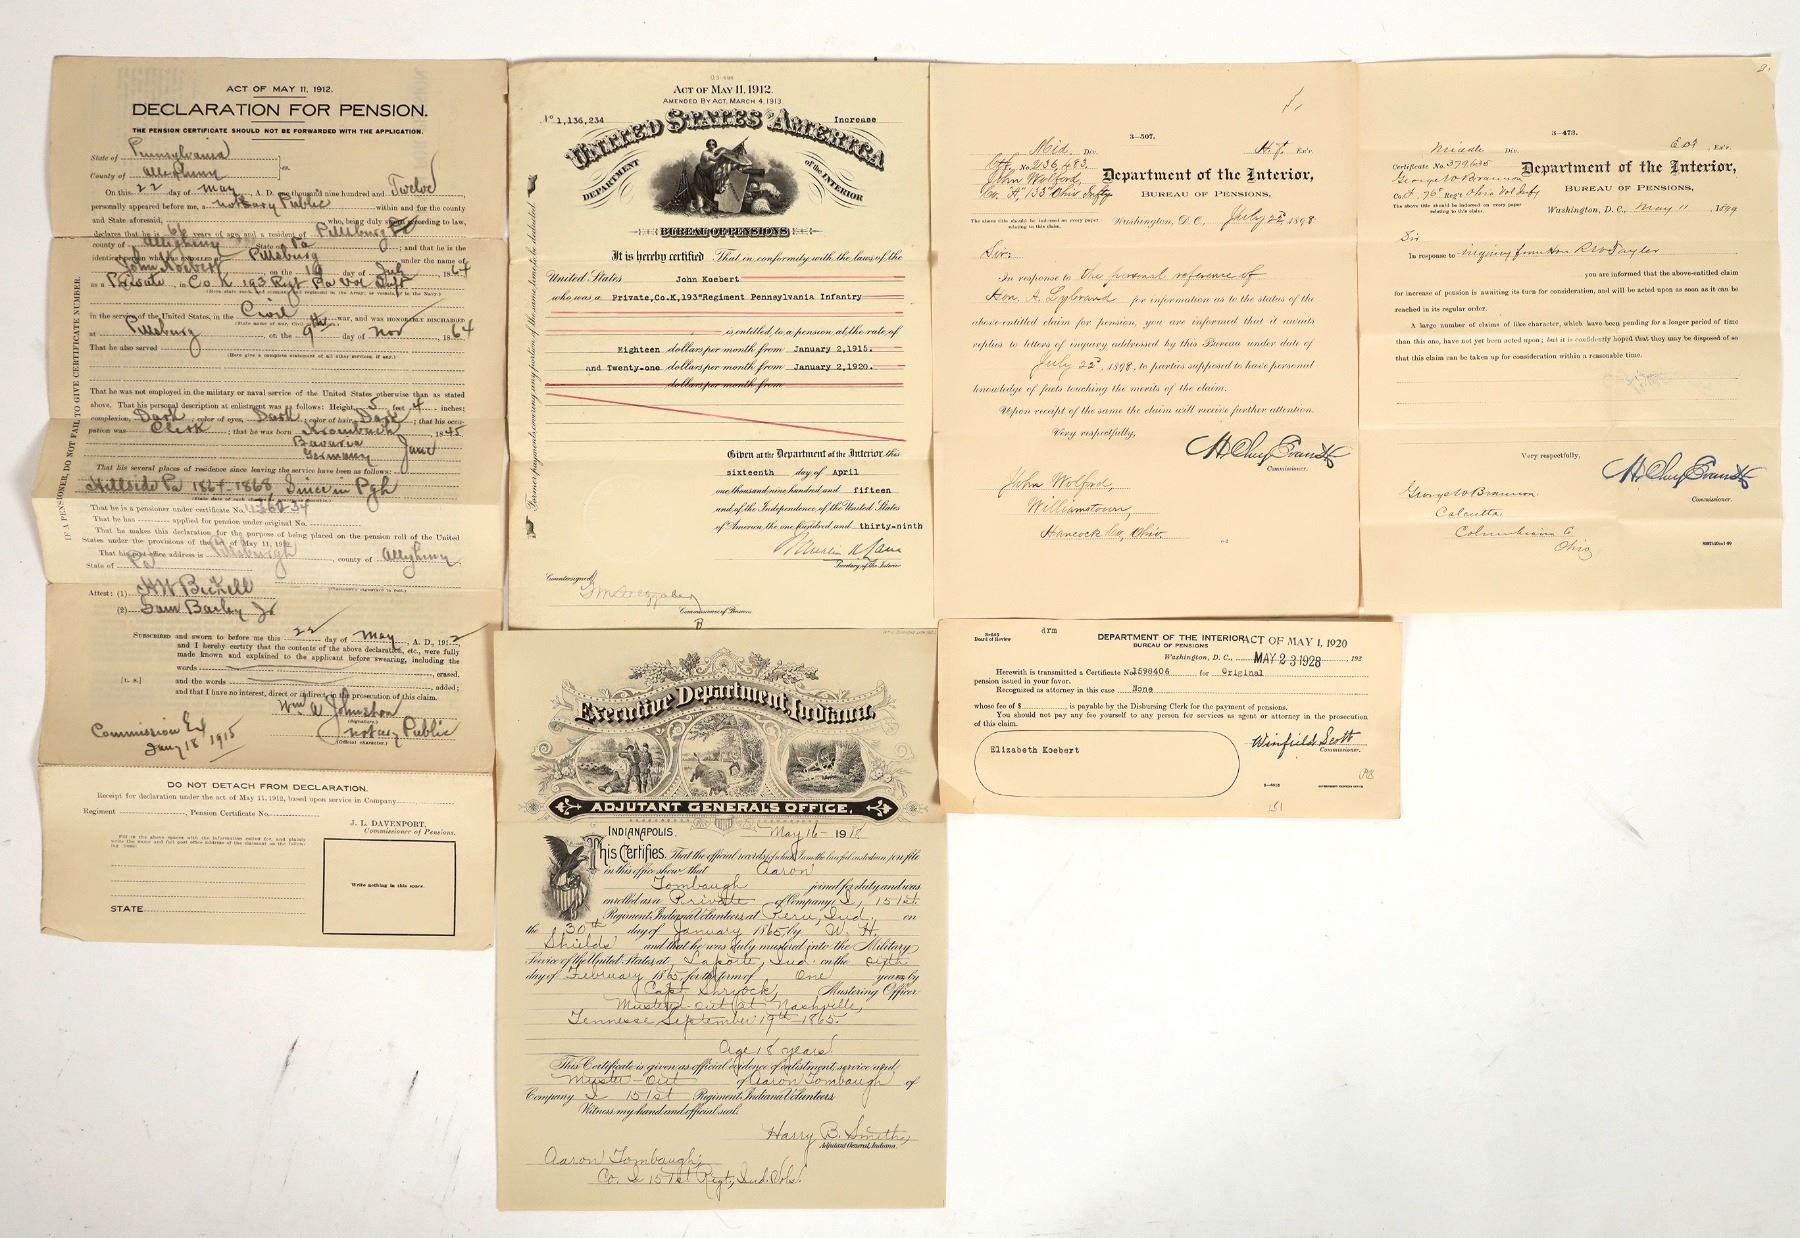 ACT OF MAY 11, 1912.
DECLARATION FOR PENSION.
THE PENSION CERTIFICATE SHOULD NOT BE FORWARDED WITH THE APPLICATION.
State of Pennsylvania
County of Allegheny } ss.
On this 22 day of May, A. D. one thousand nine hundred and Twelve
personally appeared before me, a notary Public within and for the county
and State aforesaid, who, being duly sworn according to law,
declares that he is 66 years of age, and a resident of Pittsburg Pa
county of Allegheny State of Pa; and that he is the
identical person who was ENROLLED at Pittsburg under the name of
John Koebert on the 19 day of July, 1864
as a Private in Co K 193 Regt Pa Vol Inft
(Here state rank, and company and regiment in the Army, or vessels, if in the Navy.)
in the service of the United States, in the Civil war, and was HONORABLY DISCHARGED
(State name of war, Civil or Mexican.)
at Pittsburg, on the 9th day of Nov, 1864
That he also served
(Here give a complete statement of all other services, if any.)
That he was not employed in the military or naval service of the United States otherwise than as stated
above. That his personal description at enlistment was as follows: Height, 5 feet 4 inches;
complexion, Dark; color of eyes, Dark; color of hair, Dark; that his occu-
pation was Clerk; that he was born June, 1845
Bavaria
Germany
That his several places of residence since leaving the service have been as follows:
Hillside Pa 1864-1868 Since in Pgh
That he is a pensioner under certificate No. 1136234
That he has applied for pension under original No.
That he makes this declaration for the purpose of being placed on the pension roll of the United
States under the provisions of the act of May 11, 1912.
That his post office address is Pittsburgh, county of Allegheny
State of Pa
(Claimant's signature in full.)
Attest: (1) H W Bickell
(2) Sam Barley Jr
SUBSCRIBED and sworn to before me this 22 day of May, A. D., 1912
and I hereby certify that the contents of the above declaration, etc., were fully
made known and explained to the applicant before swearing, including the
words erased,
[L. S.] and the words added;
and that I have no interest, direct or indirect, in the prosecution of this claim.
Wm A Johnston
(Signature.)
notary Public
(Official character.)
Commission Ex
Jany 18 1915
IF A PENSIONER, DO NOT FAIL TO GIVE CERTIFICATE NUMBER.
DO NOT DETACH FROM DECLARATION.
Receipt for declaration under the act of May 11, 1912, based upon service in Company
Regiment, Pension Certificate No.
J. L. DAVENPORT,
Commissioner of Pensions.
Fill in the above spaces with the information called for, and plainly
write the name and full post office address of the claimant on the follow-
ing lines:
Write nothing in this space.
STATE
ACT OF MAY 11, 1912.
AMENDED BY ACT, MARCH 4, 1913.
No 1,136,234 Increase
UNITED STATES OF AMERICA
DEPARTMENT of the INTERIOR
BUREAU OF PENSIONS
It is hereby certified That in conformity with the laws of the
United States John Koebert
who was a Private, Co. K, 193d Regiment Pennsylvania Infantry
is entitled to a pension at the rate of
Eighteen dollars per month from January 2, 1915.
and Twenty-one dollars per month from January 2, 1920.
dollars per month from
Given at the Department of the Interior this
sixteenth day of April
one thousand nine hundred and fifteen
and of the Independence of the United States
of America the one hundred and thirty-ninth
Secretary of the Interior
Countersigned,
Commissioner of Pensions
B
3—507.
Mid. Div. Ex'r.
No. 2136,483.
John Wolford
Co. "A", 133" Ohio Infty
The above title should be indexed on every paper
relating to this claim.
Department of the Interior,
BUREAU OF PENSIONS,
Washington, D. C., July 22d 1898
Sir:
In response to the personal reference of
Hon. A. Lybrand for information as to the status of the
above-entitled claim for pension, you are informed that it awaits
replies to letters of inquiry addressed by this Bureau under date of
July 22d, 1898, to parties supposed to have personal
knowledge of facts touching the merits of the claim.
Upon receipt of the same the claim will receive further attention.
Very respectfully,
H. Clay Evans
Commissioner.
John Wolford,
Williamstown,
Hancock Co., Ohio.
2.
3—473.
Middle Div. Ex'r.
Certificate No. 379,635
George W Brannon
Co. F, 76" Reg't Ohio Vol Inft
The above title should be indexed on every paper
relating to this claim.
Department of the Interior,
BUREAU OF PENSIONS,
Washington, D. C., May 11, 1899
Sir
In response to inquiry from Hon R W Tayler
you are informed that the above-entitled claim
for increase of pension is awaiting its turn for consideration, and will be acted upon as soon as it can be
reached in its regular order.
A large number of claims of like character, which have been pending for a longer period of time
than this one, have not yet been acted upon; but it is confidently hoped that they may be disposed of so
that this claim can be taken up for consideration within a reasonable time.
Very respectfully,
H. Clay Evans
Commissioner.
George W Brannon
Calcutta
Columbiana Co
Ohio
3-665
Board of Review
drm
DEPARTMENT OF THE INTERIOR
BUREAU OF PENSIONS
ACT OF MAY 1, 1920
Washington, D. C., MAY 23 1928, 192
Herewith is transmitted a Certificate No. 1598406 for Original
pension issued in your favor.
Recognized as attorney in this case None
whose fee of $, is payable by the Disbursing Clerk for the payment of pensions.
You should not pay any fee yourself to any person for services as agent or attorney in the prosecution
of this claim.
Winfield Scott
Commissioner.
Elizabeth Koebert
GOVERNMENT PRINTING OFFICE
151
Executive Department, Indiana.
ADJUTANT GENERALS OFFICE.
INDIANAPOLIS. May 16- 1918
This Certifies, That the official records (of which I am the lawful custodian) on file
in this office show that Aaron
Tombaugh joined for duty and was
enrolled as a Private of Company I, 151st
Regiment, Indiana Volunteers at Peru, Ind. on
the 30th day of January 1865 by W. H.
Shields and that he was duly mustered into the Military
Service of the United States at Laporte, Ind. on the sixth
day of February 1865 for the term of One years by
Capt. Shryock, Mustering Officer
Mustered-out at Nashville,
Tennesse, September 19th 1865.
Age 18 years.
This Certificate is given as official evidence of enlistment, service and
Muster-Out of Aaron Tombaugh of
Company I 151st Regiment, Indiana Volunteers.
Witness my hand and official seal.
Harry B. Smith,
Adjutant General, Indiana.
Aaron Tombaugh,
Co. I 151st Regt, Ind. Vols.